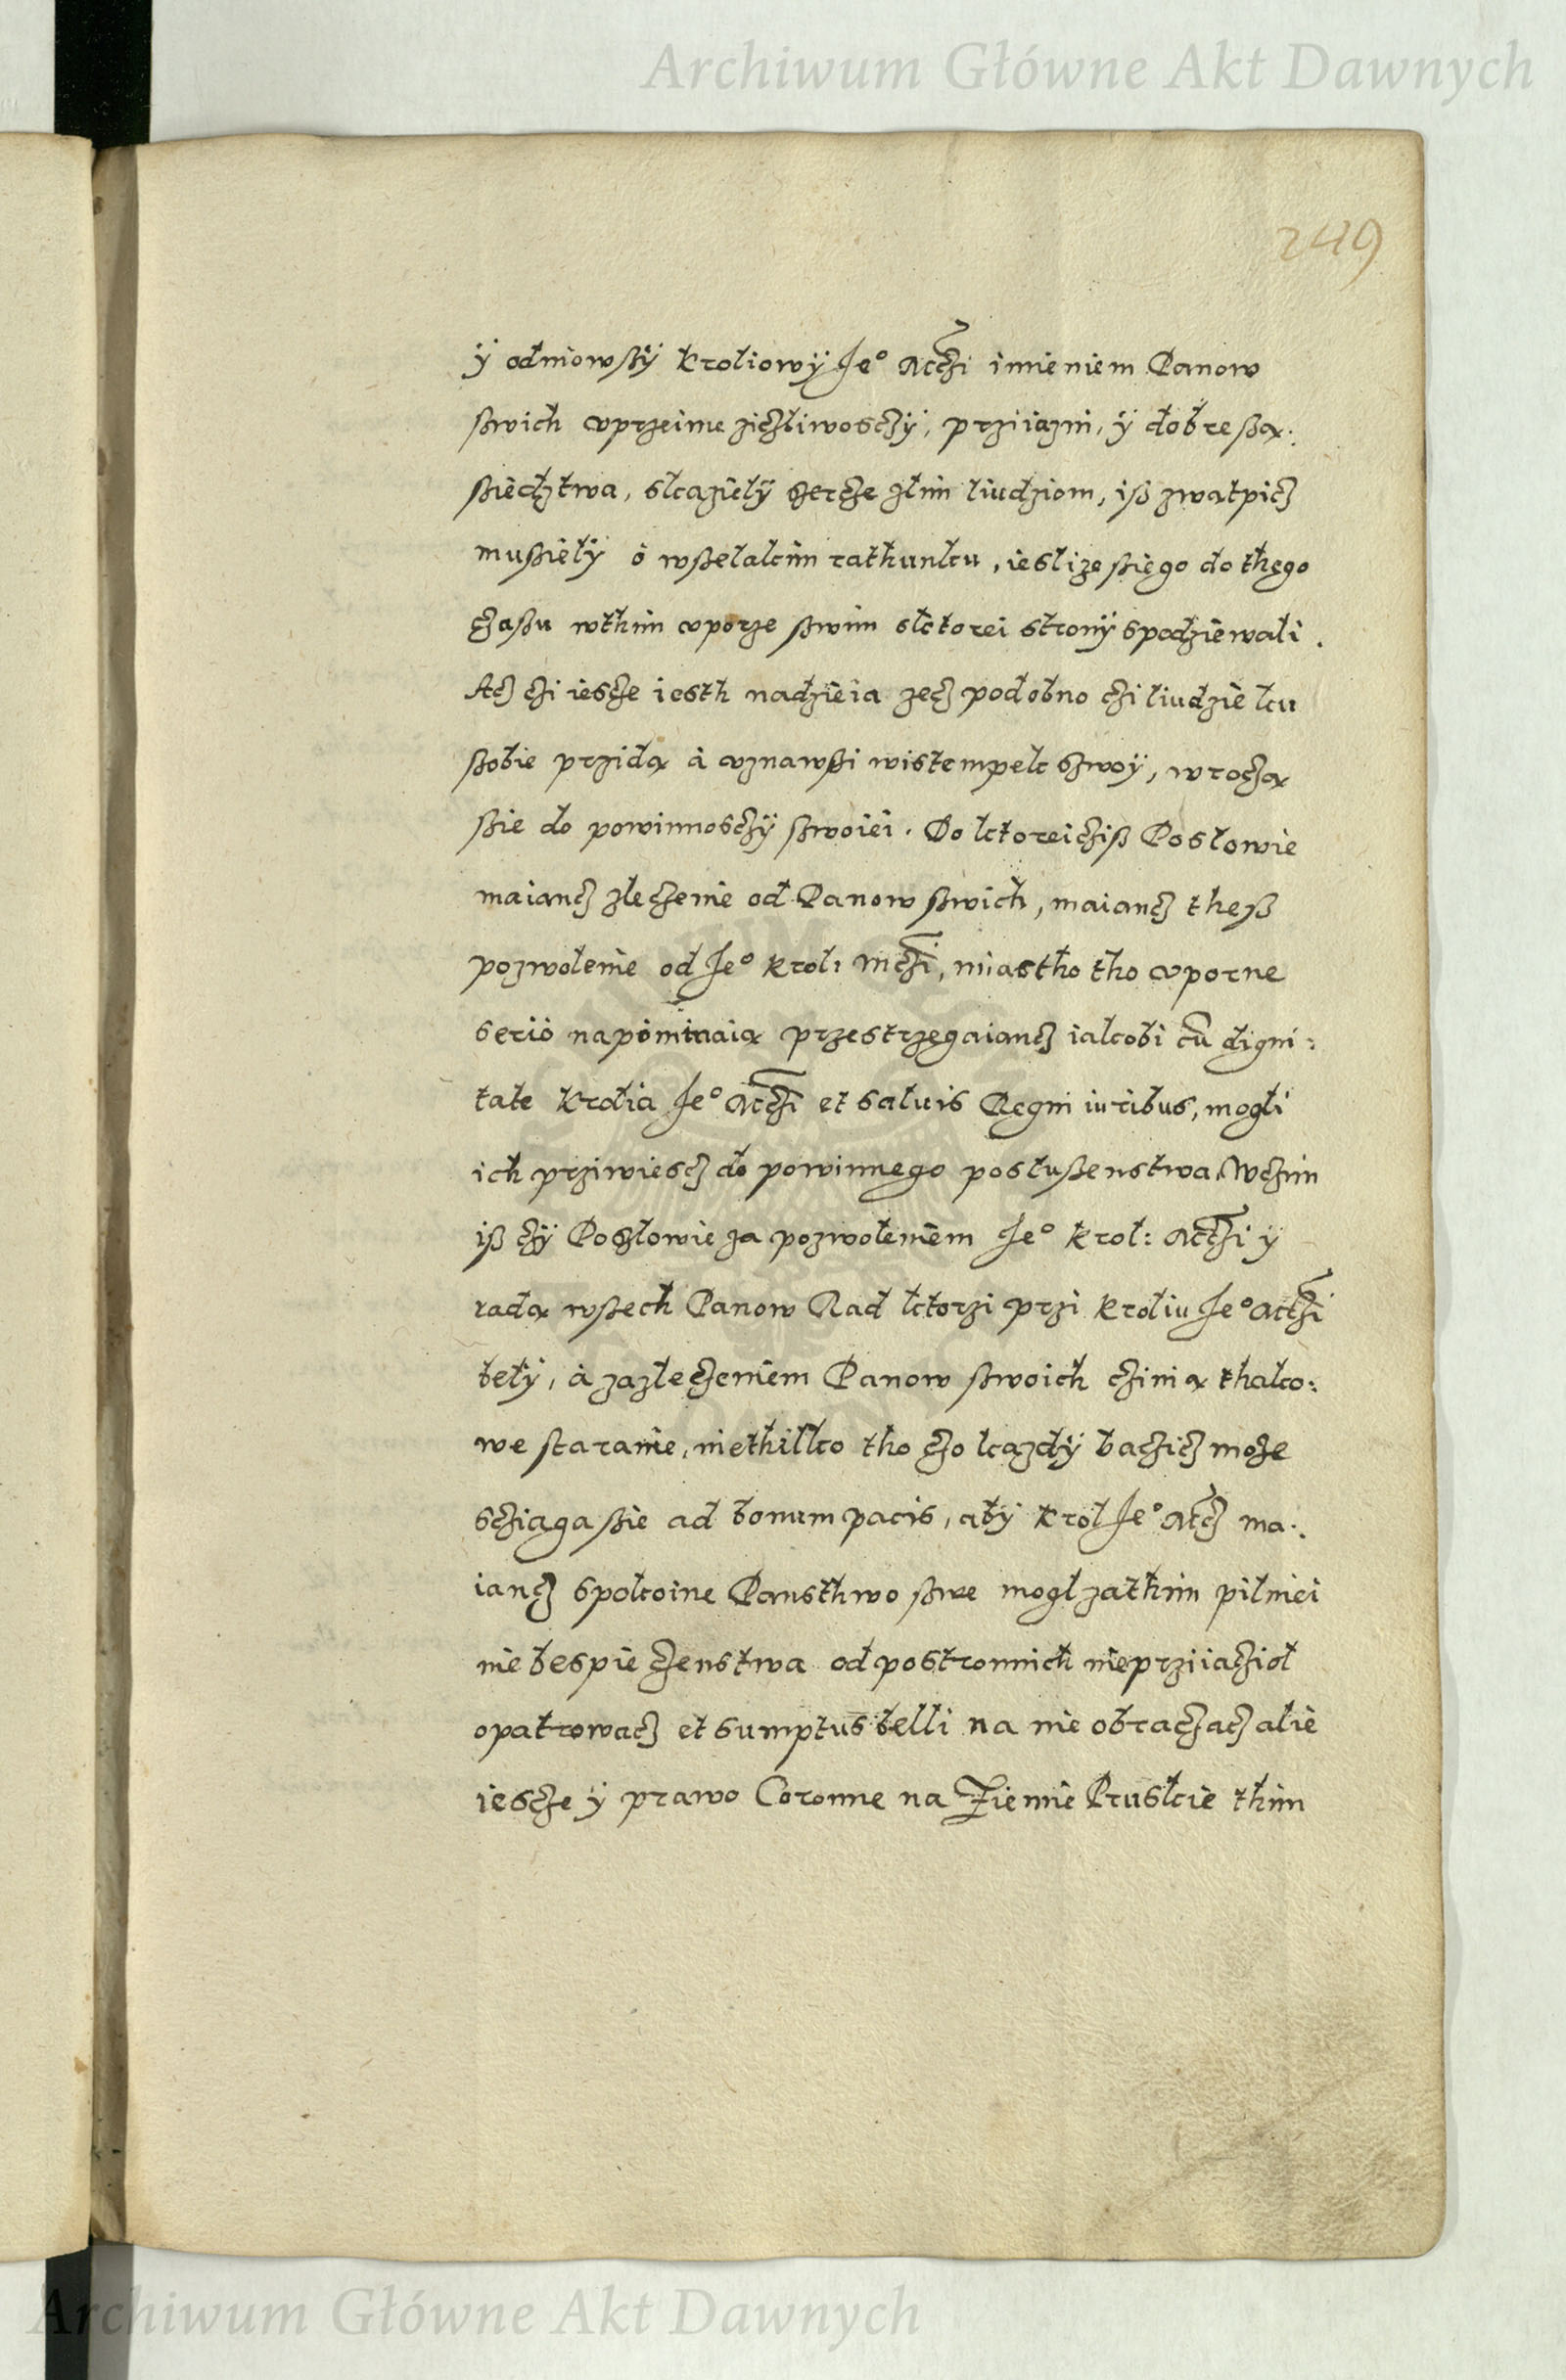 Archiwum Główne Akt Dawnych
249
ÿ odniowßÿ Kroliowÿ Je° Mczi imieniem Panow
ßwich vprzeime ziczliwosczÿ, prziiazni, ÿ dobre ßą:
ßiedztwa, skazielÿ szercze złim liudziom, iß zwatpicz
mußielÿ o wßelakim rathunku, iesli ze ßięgo do thęgo
czaßu wthim vporze ßwim sktorei stronÿ spodziewali.
Acz czi iescze iesth nadzieia zecz podobno czi liudzie ku
ßobie przidą à vznawßi wistempek szwoÿ, wroczą
ßie do powinnosczÿ ßwoiei. Do ktoreicziß Posłowie
maiancz zleczenie od Panow ßwich, maiancz theß
pozwolenie od Je° Krol: Mczi, miastho tho vporne
serio napominaią przestrzęgaiancz iakobi cū digni:
tate Krolia Je° Mczi et saluis Regni iuribus, mogli
ich prziwiescz do powinnego poslußenstwa. Wczim
iß czÿ Poszlowie za pozwoleniem Je° Krol: Mczi ÿ
radą wßech Panow Rad ktorzi przi Kroliu Je° Mczi
belÿ, à zazleczeniem Panow ßwoich czinią thako:
we staranie, niethilko tho czo kazdÿ baczicz może
scziąga ßie ad bonum pacis, abÿ Krol Je° Mcz ma:
iancz spokoine Pansthwo ßwe mogl zathim pilniei
niebespieczenstwa od postronnich nieprziiacziol
opatrowacz et sumptus belli na nie obraczacz alie
iescze ÿ prawo Coronne na Ziemie Pruskie thim
Archiwum Główne Akt Dawnych